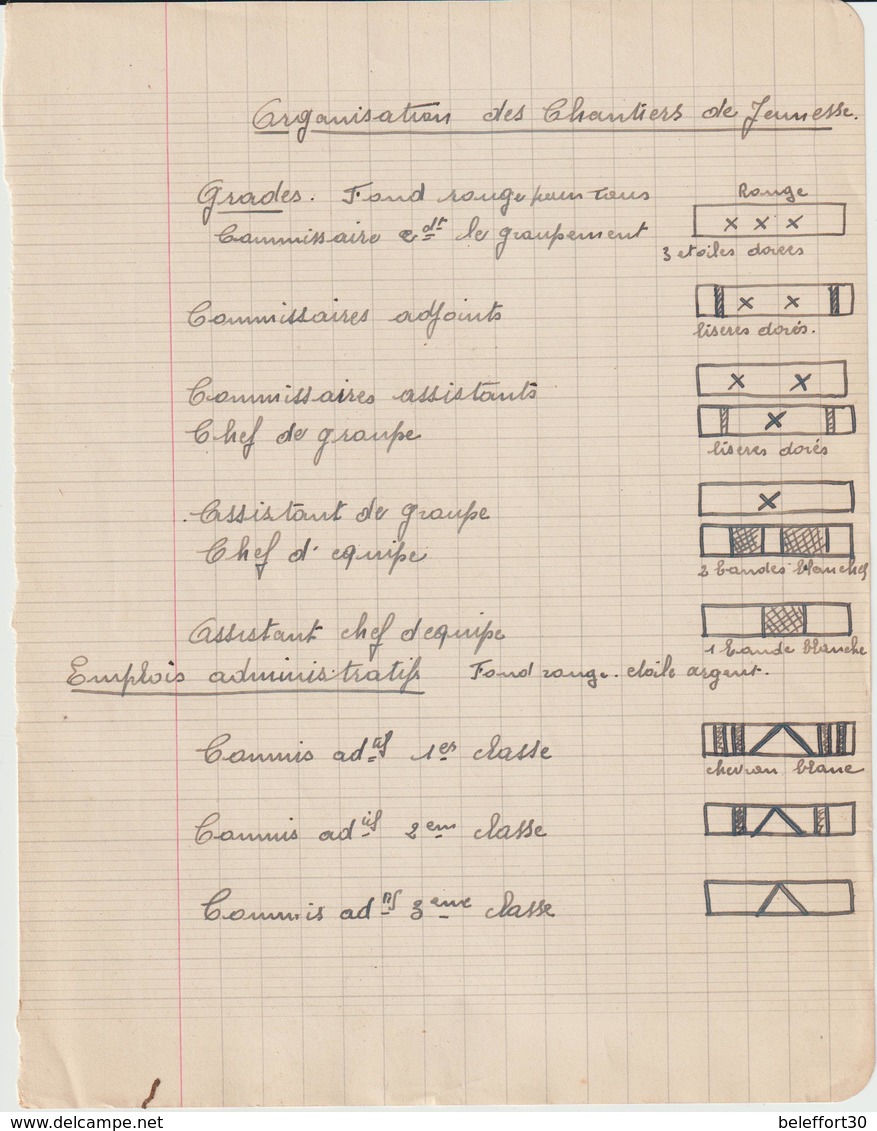 Organisation des Chantiers de Jeunesse.
Grades. Fond rouge pour tous
Rouge
Commissaire cdt le groupement
3 etoiles dorées
Commissaires adjoints
liseres dorés.
Commissaires assistants
Chef de groupe
liseres dorés
Assistant de groupe
Chef d'equipe
2 bandes blanches
Assistant chef d'equipe
1 bande blanche
Emplois administratifs Fond rouge. etoile argent.
Commis adtif 1er classe
chevron blanc
Commis adtif 2em classe
Commis adtif 3eme classe
www.delcampe.net
beleffort30